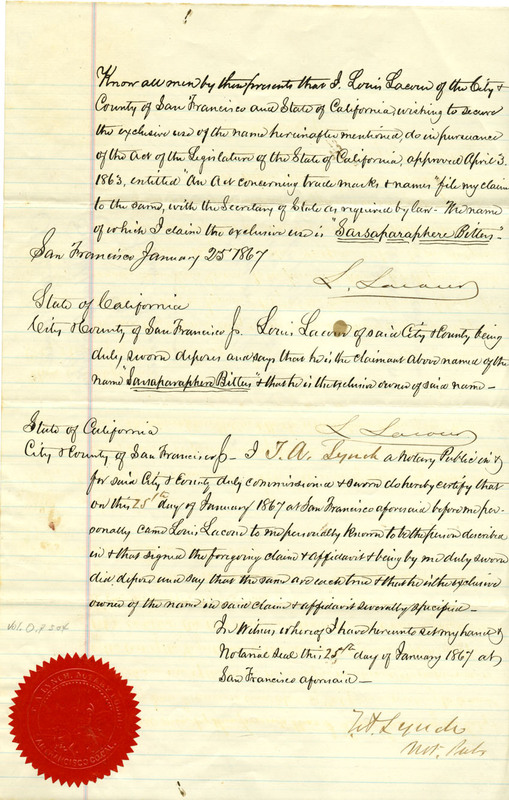 Know all men by these presents that I, Louis Lacour of the City &
County of San Francisco and State of California, wishing to secure
the exclusive use of the name hereinafter mentioned, do in pursuance
of the Act of the Legislature of the State of California, approved April 3.
1863, entitled "An Act concerning trade marks & names" file my claim
to the same, with the Secretary of State as required by law - The name
of which I claim the exclusive use is "Sarsaparaphere Bitters"-
San Francisco January 25 1867
L. Lacour
State of California
City & County of San Francisco Louis Lacour of said City & County being
duly sworn deposes and says that he is the claimant above named of the
name "Sarsaparaphere Bitters" & that he is the exclusive owner of said name -
L. Lacour
State of California
City & County of San Francisco - I T. A. Lynch a Notary Public in &
for said City & County duly commissioned & sworn do hereby certify that
on this 25th day of January 1867 at San Francisco aforesaid before me per-
sonally came Louis Lacour to me personally known to be the person described
in & that signed the foregoing claim & affidavit & being by me duly sworn
did depose and say that the same are each true & that he is the exclusive
owner of the name in said claim & affidavit severally specified -
In Witness whereof I have hereunto set my hand &
Notarial Seal this 25th day of January 1867 at
San Francisco aforesaid -
T. A. Lynch
Not. Pub.